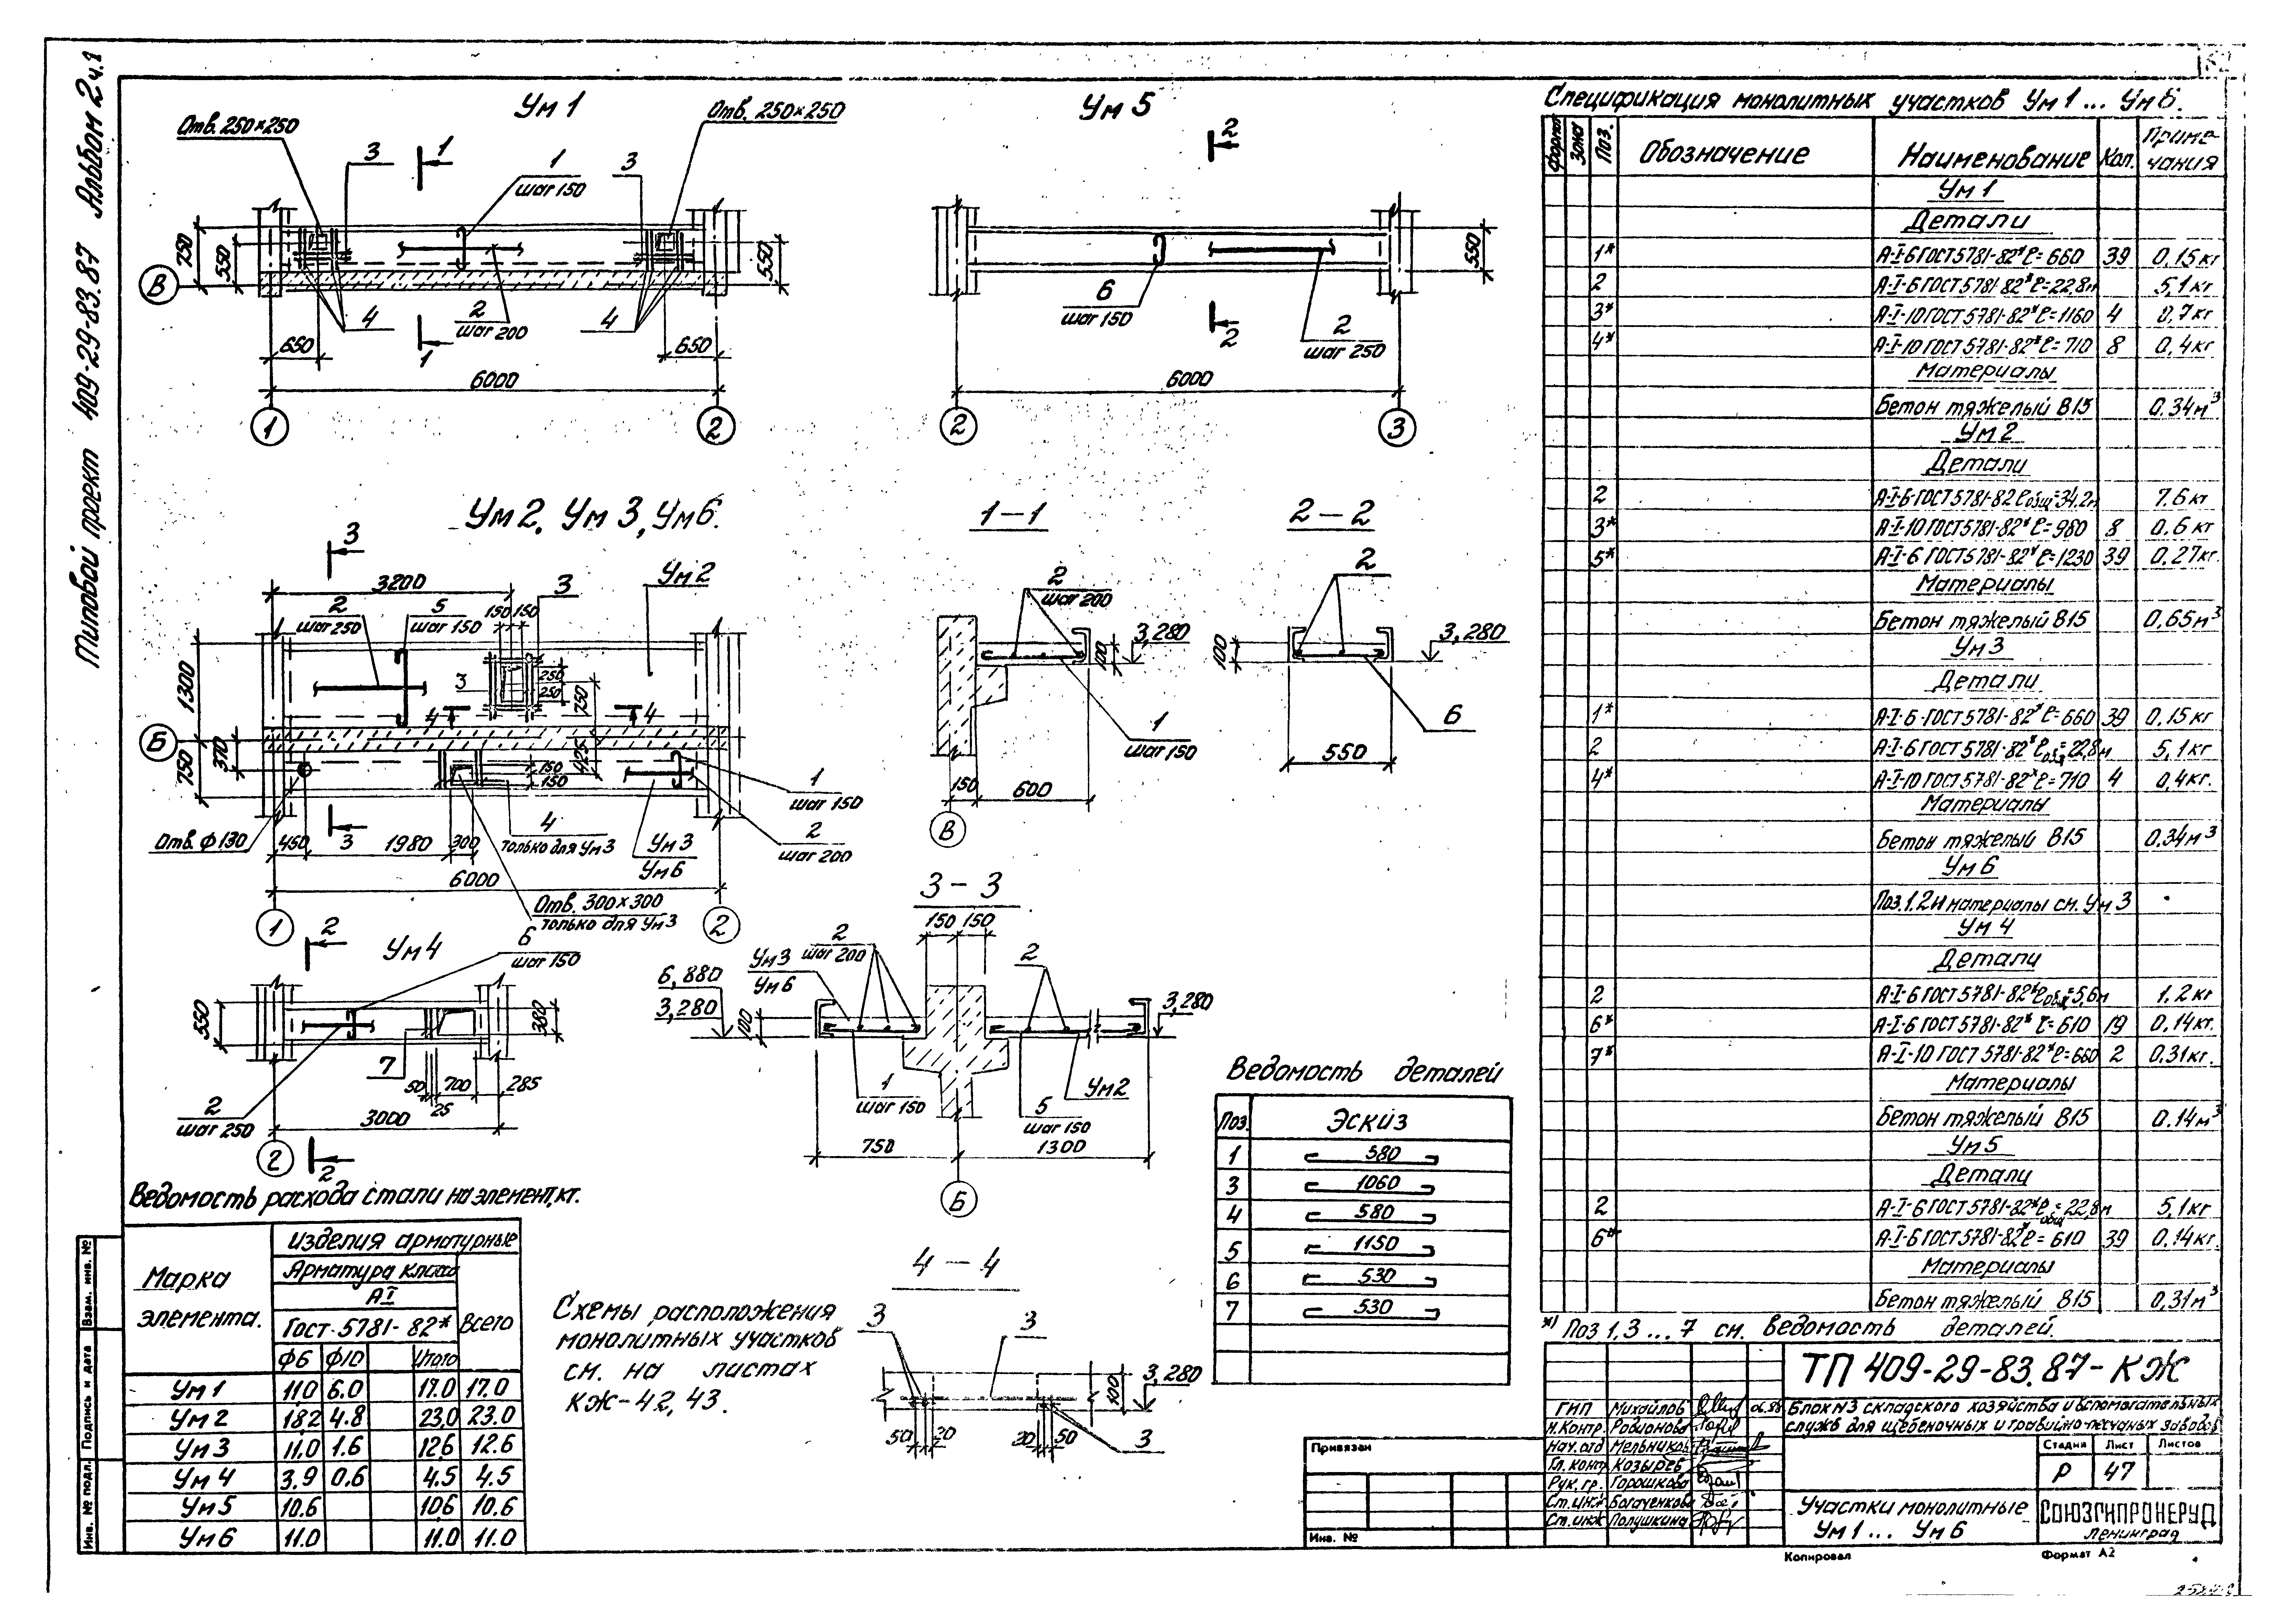 Типовой проект 409-29-83.87 Альбом 2 ч.1
Ум 1
Отв. 250×250
Отв. 250×250
3
1
1
шаг 150
3
750
550
550
В
4
2
шаг 200
4
1
650
650
6000
1
2
Ум 5
2
550
6
шаг 150
2
2
шаг 250
6000
2
3
Ум 2, Ум 3, Ум 6.
3
3200
2
шаг 250
5
шаг 150
150 150
3
Ум 2
1300
3
250
250
750
4
4
Б
370
750
425
150
150
1
шаг 150
2
шаг 200
Отв. ф 130
450
3
1980
300
4
только для Ум 3
Ум 3
Ум 6
6000
Отв. 300×300
только для Ум 3
1
2
1-1
2
шаг 200
3,280
100
1
шаг 150
150
600
В
2-2
2
3,280
100
6
550
Ум 4
2
6
шаг 150
550
380
7
50
700
285
25
2
шаг 250
3000
2
2
3-3
150 150
2
шаг 200
Ум 3
Ум 6
2
6,880
3,280
100
3,280
1
шаг 150
5
шаг 150
Ум 2
750
1300
Б
4-4
3
3
3,280
100
50
20
20
50
3
Схемы расположения
монолитных участков
см. на листах
КЖ-42, 43.
Ведомость расхода стали на элемент, кг.
Марка элемента.
Изделия арматурные
Арматура класса
А I
Гост 5781-82*
Всего
Ф6 Ф10 Итого
Ум 1 11.0 6.0 17.0 17.0
Ум 2 18.2 4.8 23.0 23.0
Ум 3 11.0 1.6 12.6 12.6
Ум 4 3.9 0.6 4.5 4.5
Ум 5 10.6 10.6 10.6
Ум 6 11.0 11.0 11.0
Ведомость деталей
Поз. Эскиз
1 580
3 1060
4 580
5 1150
6 530
7 530
Спецификация монолитных участков Ум 1... Ум 6.
Формат Зона Поз. Обозначение Наименование Кол. Примечания
Ум 1
Детали
1* А-I-6 ГОСТ 5781-82* ℓ=660 39 0,15 кг
2 А-I-6 ГОСТ 5781-82* ℓ=22,8м 5,1 кг
3* А-I-10 ГОСТ 5781-82* ℓ=1160 4 0,7 кг
4* А-I-10 ГОСТ 5781-82* ℓ=710 8 0,4 кг
Материалы
Бетон тяжелый В15 0.34 м³
Ум 2
Детали
2 А-I-6 ГОСТ 5781-82 ℓобщ=34.2м 7.6 кг
3* А-I-10 ГОСТ 5781-82* ℓ=980 8 0.6 кг
5* А-I-6 ГОСТ 5781-82* ℓ=1230 39 0.27 кг.
Материалы
Бетон тяжелый В15 0,65 м³
Ум 3
Детали
1* А-I-6 ГОСТ 5781-82* ℓ=660 39 0,15 кг
2 А-I-6 ГОСТ 5781-82* ℓобщ=22,8м 5,1 кг
4* А-I-10 ГОСТ 5781-82* ℓ=710 4 0,4 кг.
Материалы
Бетон тяжелый В15 0,34 м³
Ум 6
Поз. 1.2 и материалы см. Ум 3
Ум 4
Детали
2 А-I-6 ГОСТ 5781-82* ℓобщ=5,6м 1.2 кг
6* А-I-6 ГОСТ 5781-82* ℓ=610 19 0,14 кг.
7* А-I-10 ГОСТ 5781-82* ℓ=660 2 0,31 кг.
Материалы
Бетон тяжелый В15 0.14 м³
Ум 5
Детали
2 А-I-6 ГОСТ 5781-82* ℓобщ=22,8м 5,1 кг
6* А-I-6 ГОСТ 5781-82* ℓ=610 39 0.14 кг.
Материалы
Бетон тяжелый В15 0,31 м³
*) Поз 1, 3 ... 7 см. ведомость деталей.
ТП 409-29-83.87-КЖ
Блок №3 складского хозяйства и вспомогательных
служб для щебеночных и гравийно-песчаных заводов
ГИП Михайлов
Н.Контр. Родионова
Нач.отд Мельников
Гл. контр Козырев
Рук. гр. Горошкова
Ст.инж Богаченкова
Ст.инж Полушкина
Стадия Лист Листов
Р 47
Участки монолитные
Ум 1 ... Ум 6
СОЮЗГИПРОНЕРУД
Ленинград
Привязан
Инв. №
Копировал
Формат А2
Взам. инв. №
Подпись и дата
Инв. № подл.